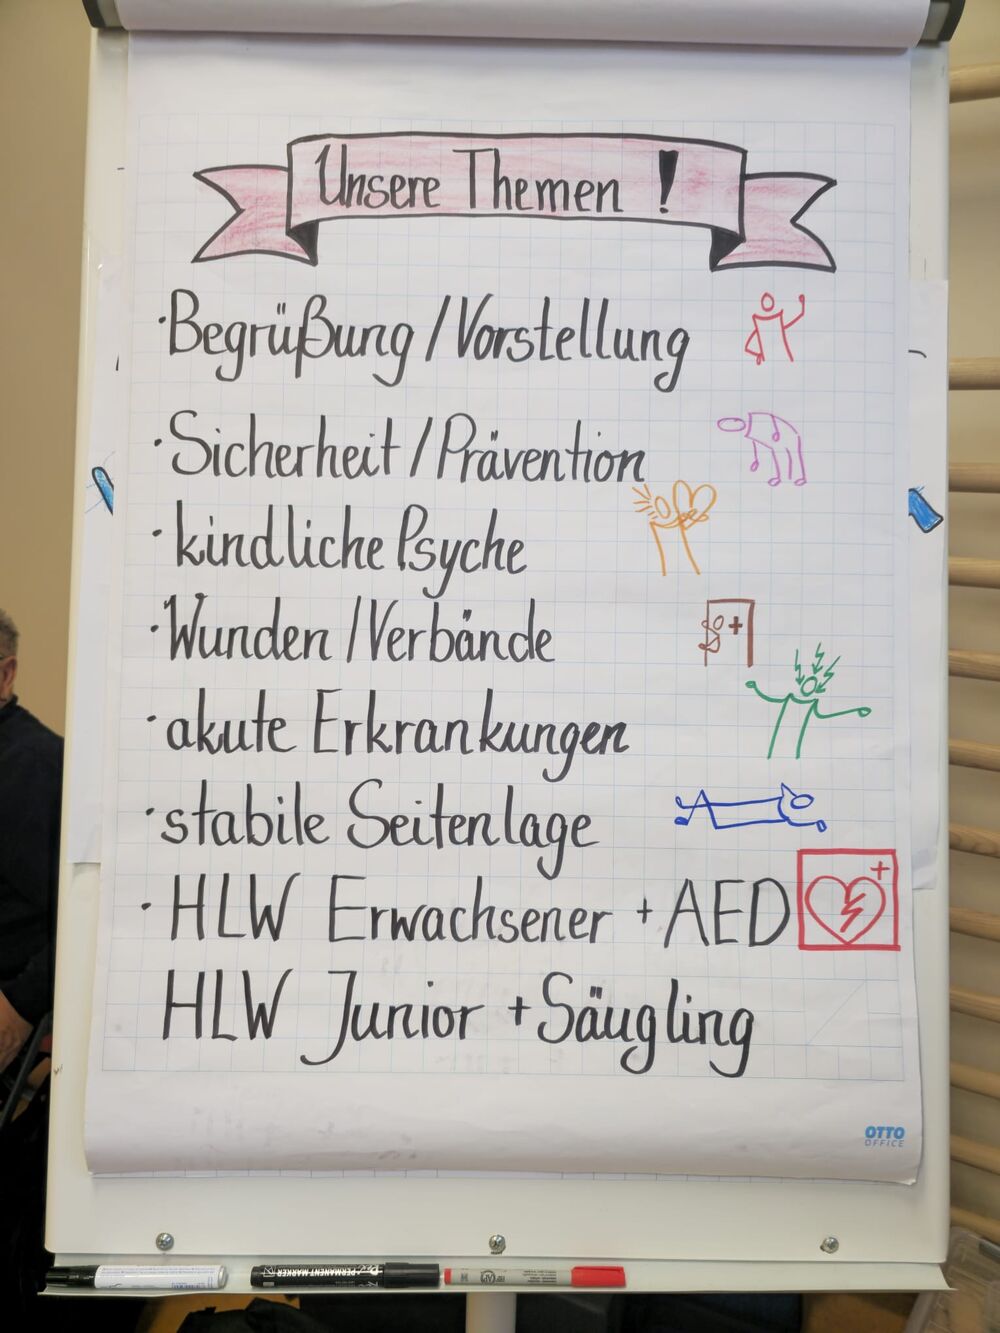 Unsere Themen !
· Begrüßung / Vorstellung
· Sicherheit / Prävention
· kindliche Psyche
· Wunden / Verbände
· akute Erkrankungen
· stabile Seitenlage
· HLW Erwachsener + AED
HLW Junior + Säugling
OTTO
OFFICE
PERMANENT MARKER